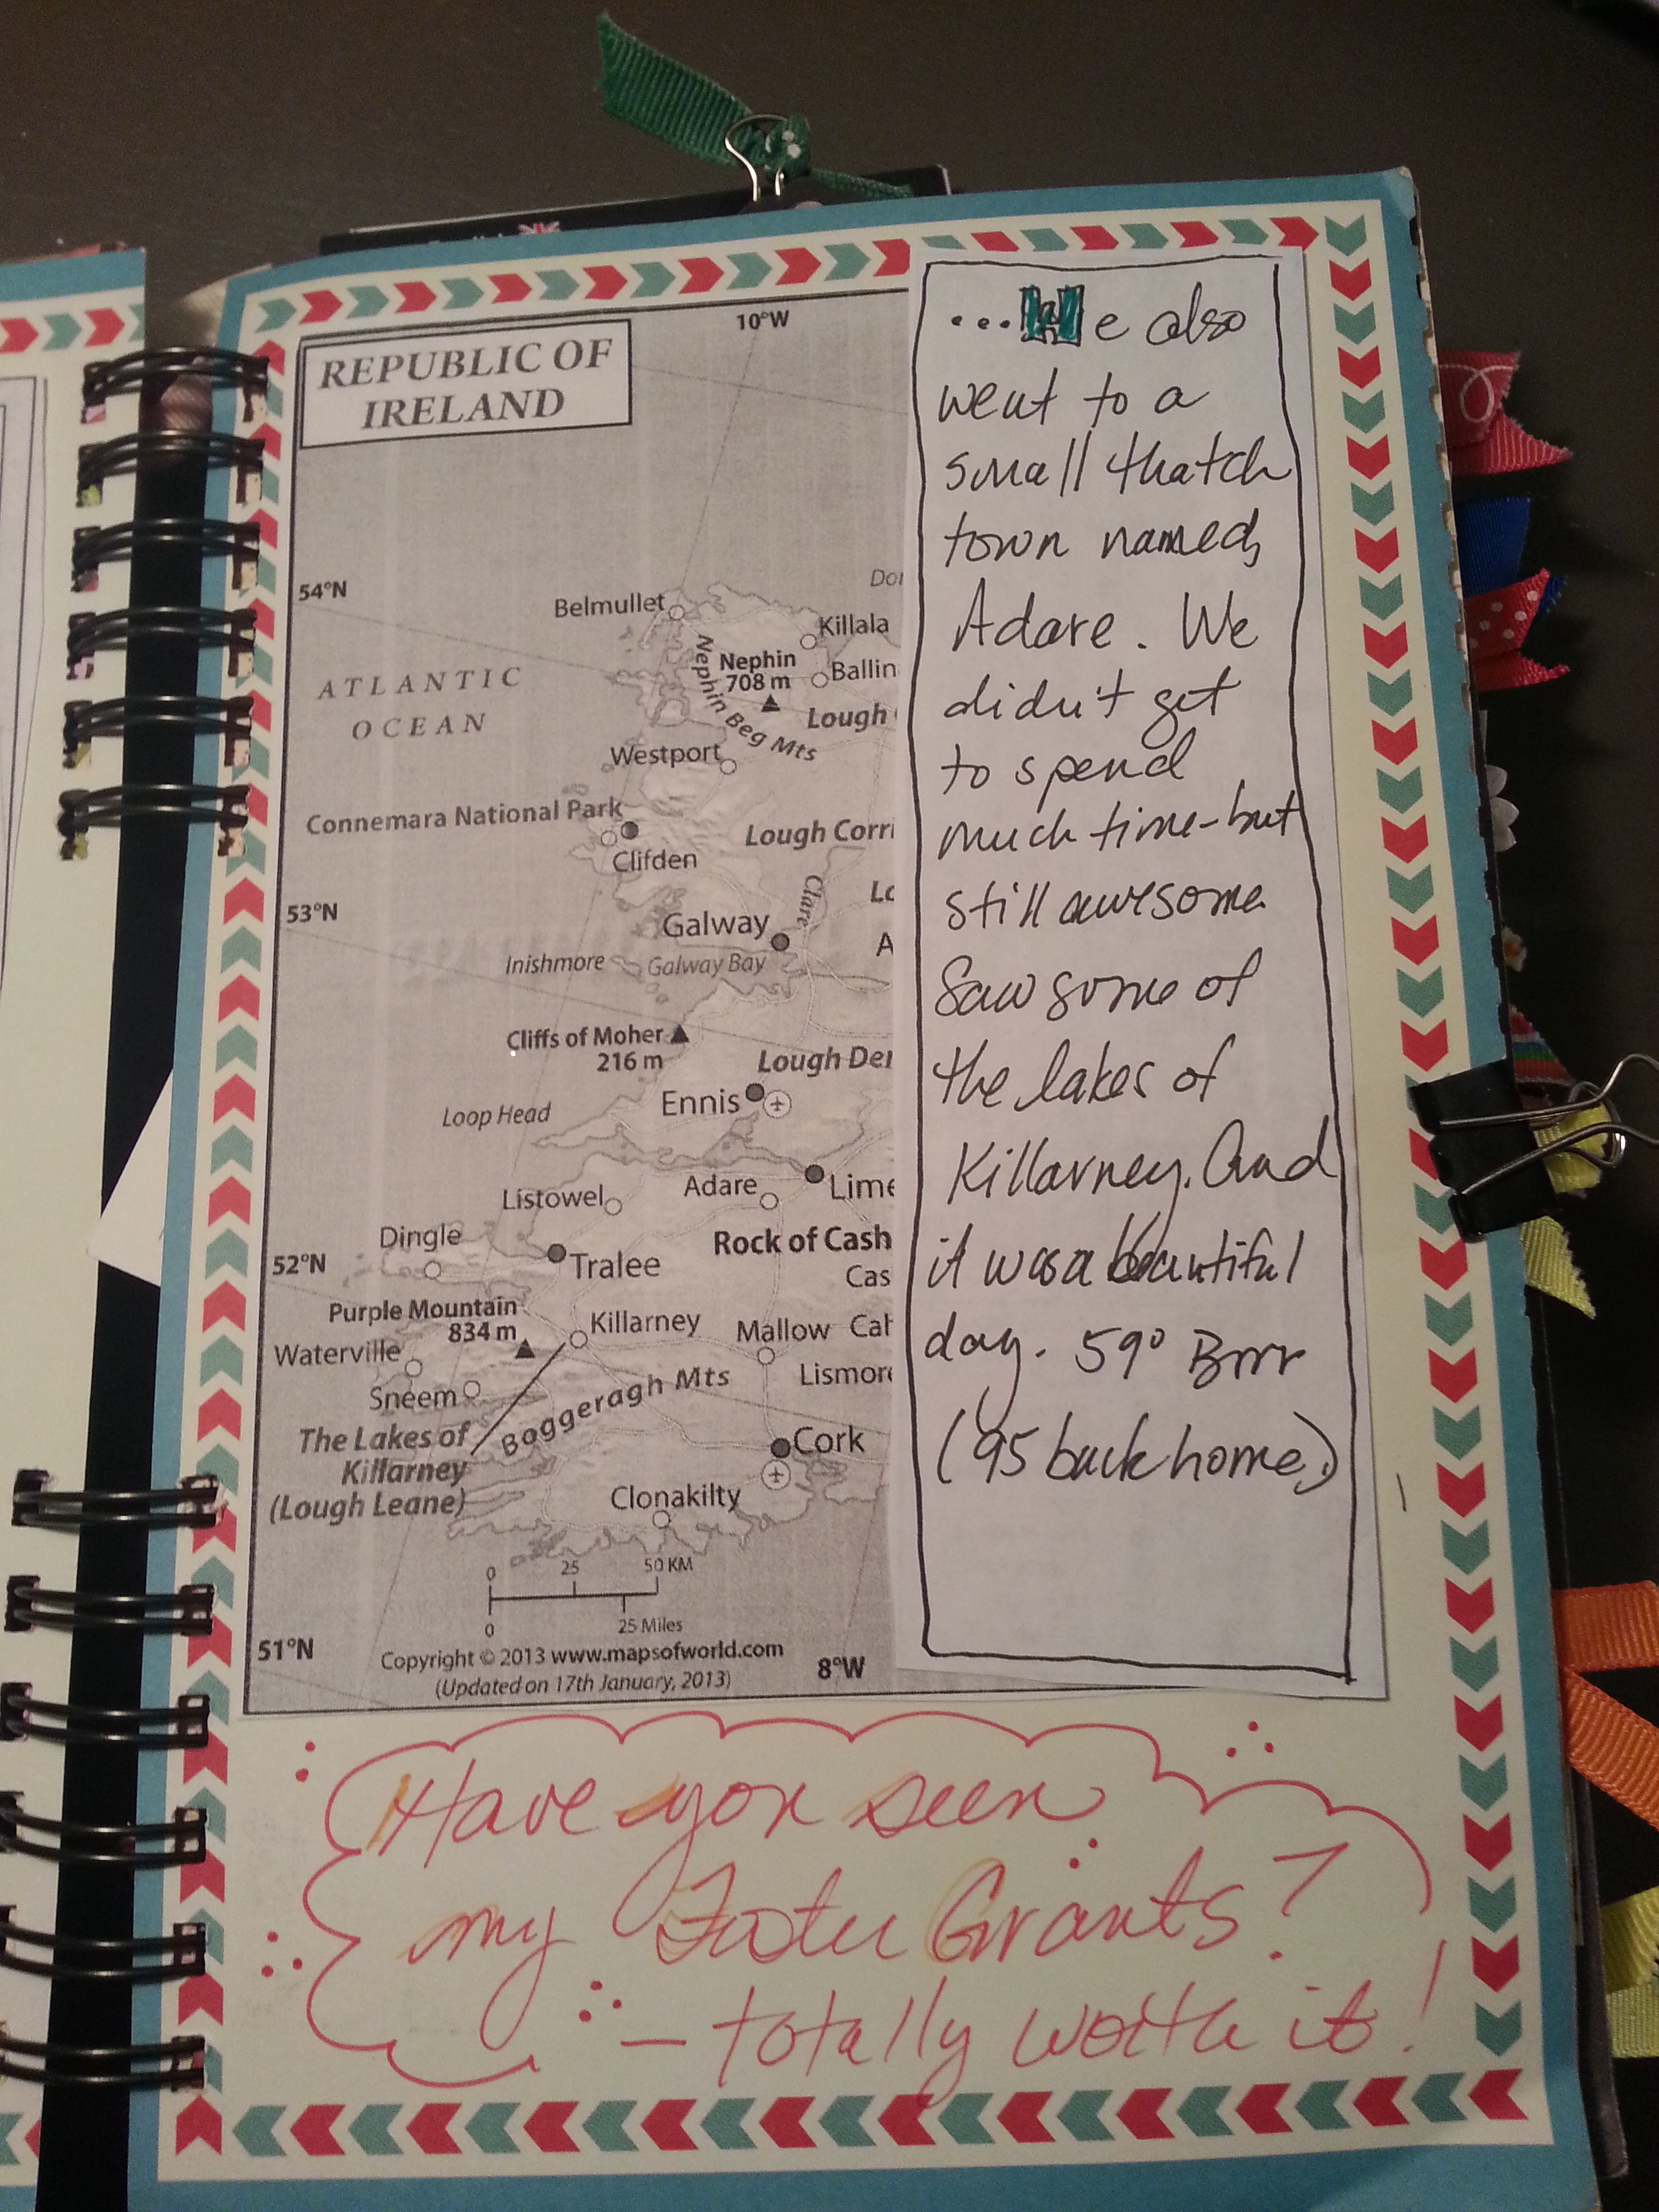 REPUBLIC OF
IRELAND
10°W
54°N
Belmullet
Killala
Nephin
708 m
Ballin
Nephin Beg Mts
Lough
ATLANTIC
OCEAN
Westport
Connemara National Park
Clifden
Lough Corri
Clare
53°N
Galway
Inishmore
Galway Bay
Cliffs of Moher
216 m
Lough Der
Ennis
Loop Head
Listowel
Adare
Lime
Dingle
52°N
Tralee
Rock of Cash
Cas
Purple Mountain
834 m
Killarney
Mallow
Cah
Waterville
Sneem
Boggeragh Mts
Lismore
The Lakes of
Killarney
(Lough Leane)
Cork
Clonakilty
0 25 50 KM
0 25 Miles
51°N
Copyright © 2013 www.mapsofworld.com
(Updated on 17th January, 2013)
8°W
...We also
went to a
small thatch
town named,
Adare. We
didn't get
to spend
much time-but
still awesome
Saw some of
the lakes of
Killarney. And
it was a beautiful
day. 59° Brrr
(95 back home.)
Have you seen
my Foster Grants?
- totally worth it!